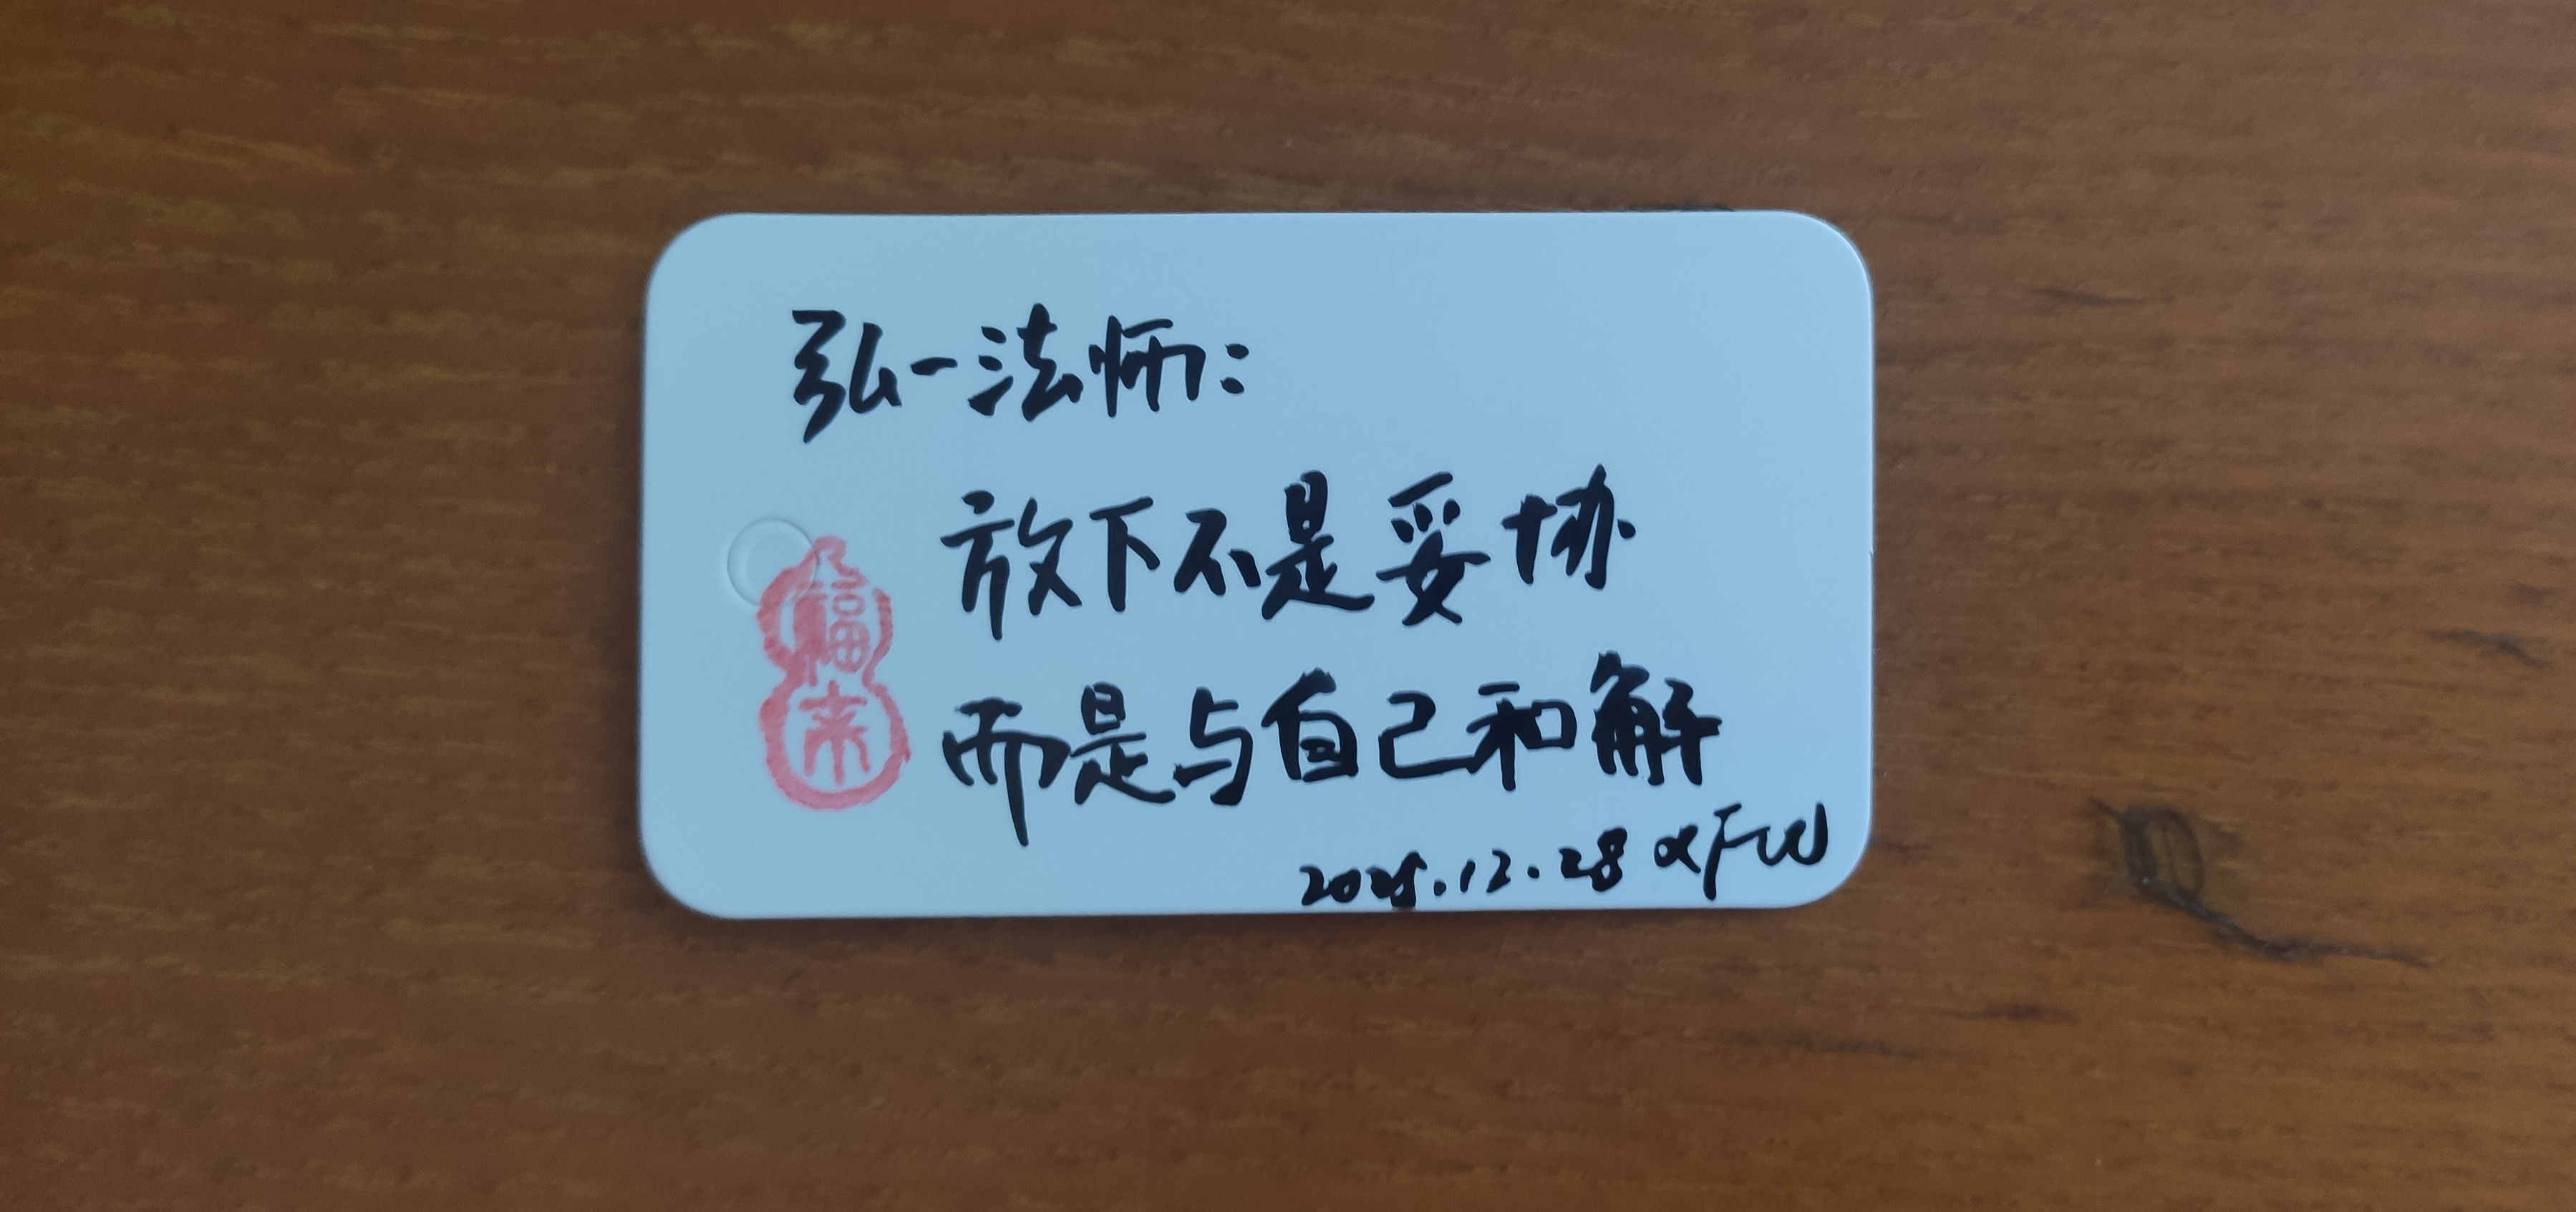 弘一法师:
放下不是妥协
而是与自己和解
福来
2025.12.28